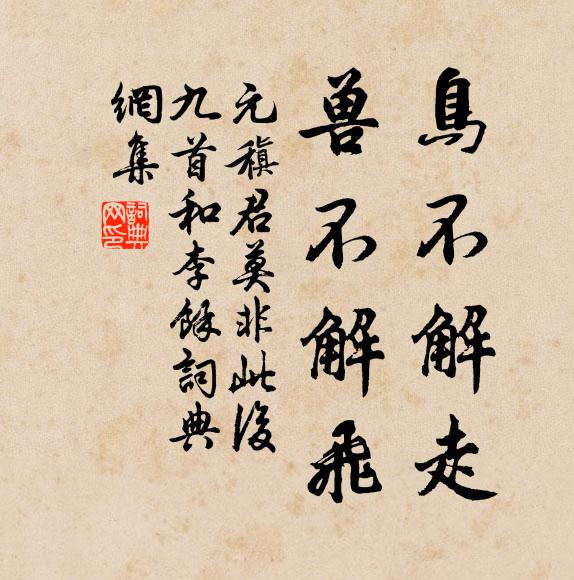 鳥不解走
兽不解飛
元稹君莫非此後
九首和李餘詞典
網集
詞典網印